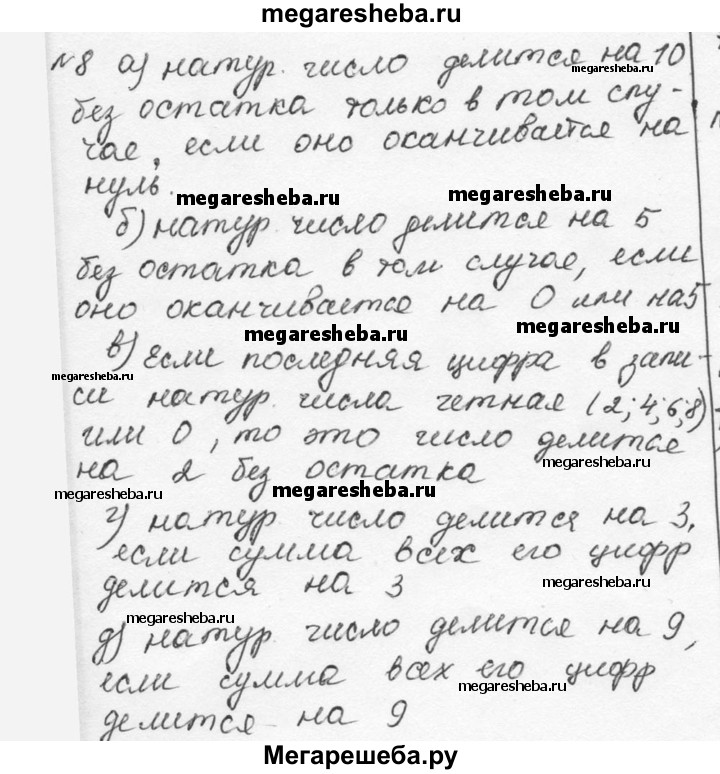 megaresheba.ru
№8 а) натур. число делится на 10
megaresheba.ru
без остатка только в том слу-
чае, если оно оканчивается на
нуль.
megaresheba.ru megaresheba.ru
б) натур. число делится на 5
без остатка в том случае, если
оно оканчивается на 0 или на 5
megaresheba.ru megaresheba.ru
в) Если последняя цифра в запи-
megaresheba.ru
си натур. числа четная (2; 4; 6; 8)
или 0, то это число делится
на 2 без остатка
megaresheba.ru
megaresheba.ru megaresheba.ru
г) натур. число делится на 3,
если сумма всех его цифр
делится на 3
megaresheba.ru
megaresheba.ru
д) натур. число делится на 9,
если сумма всех его цифр
megaresheba.ru
делится на 9
Мегарешеба.ру